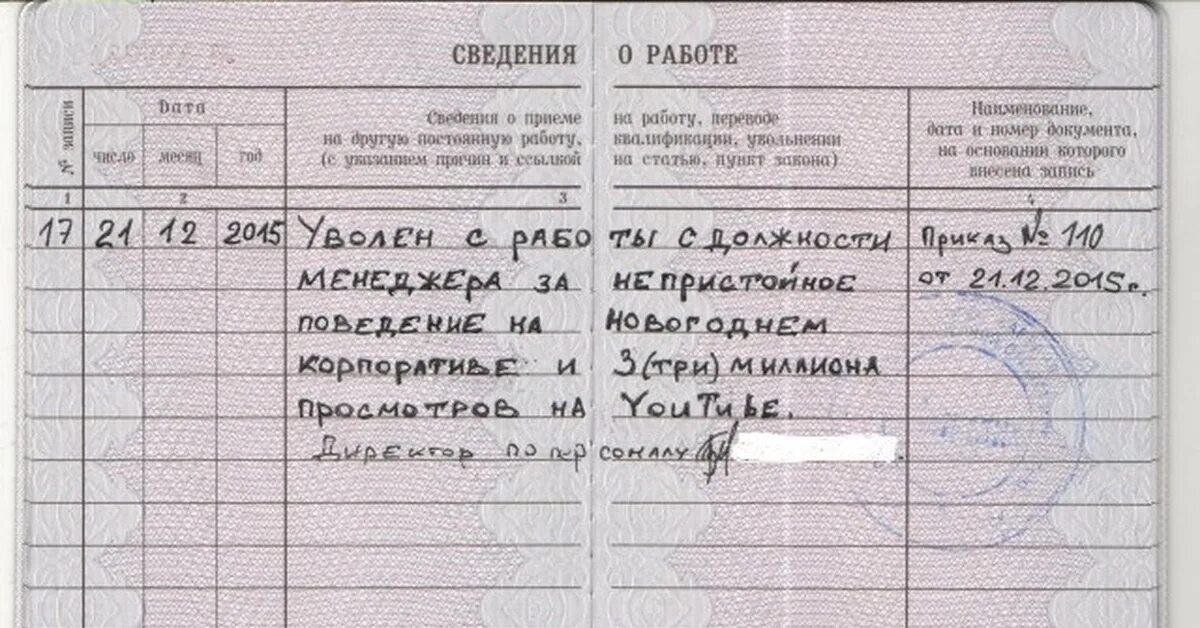 СВЕДЕНИЯ О РАБОТЕ
№ записи
Дата
число месяц год
Сведения о приеме на работу, переводе
на другую постоянную работу, квалификации, увольнении
(с указанием причин и ссылкой на статью, пункт закона)
Наименование,
дата и номер документа,
на основании которого
внесена запись
1 2 3 4
17 21 12 2015 УВОЛЕН С РАБОТЫ С ДОЛЖНОСТИ Приказ № 110
МЕНЕДЖЕРА ЗА НЕПРИСТОЙНОЕ от 21.12.2015г.
ПОВЕДЕНИЕ НА НОВОГОДНЕМ
КОРПОРАТИВЕ И 3(ТРИ) МИЛЛИОНА
ПРОСМОТРОВ НА YOUTUBE.
Директор по персоналу